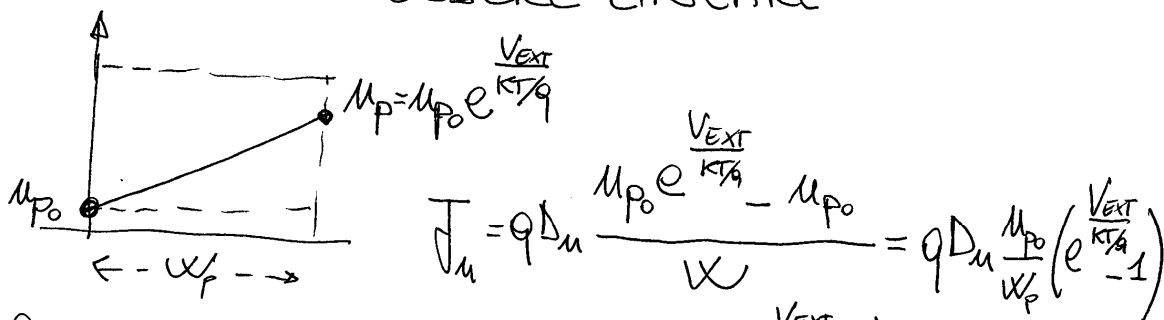 n_p = n_{p_0} e^{\frac{V_{EXT}}{KT/q}}
n_{p_0}
J_n = q D_n \frac{n_{p_0} e^{\frac{V_{EXT}}{KT/q}} - n_{p_0}}{W} = q D_n \frac{n_{p_0}}{W_p} \left( e^{\frac{V_{EXT}}{KT/q}} - 1 \right)
W_p